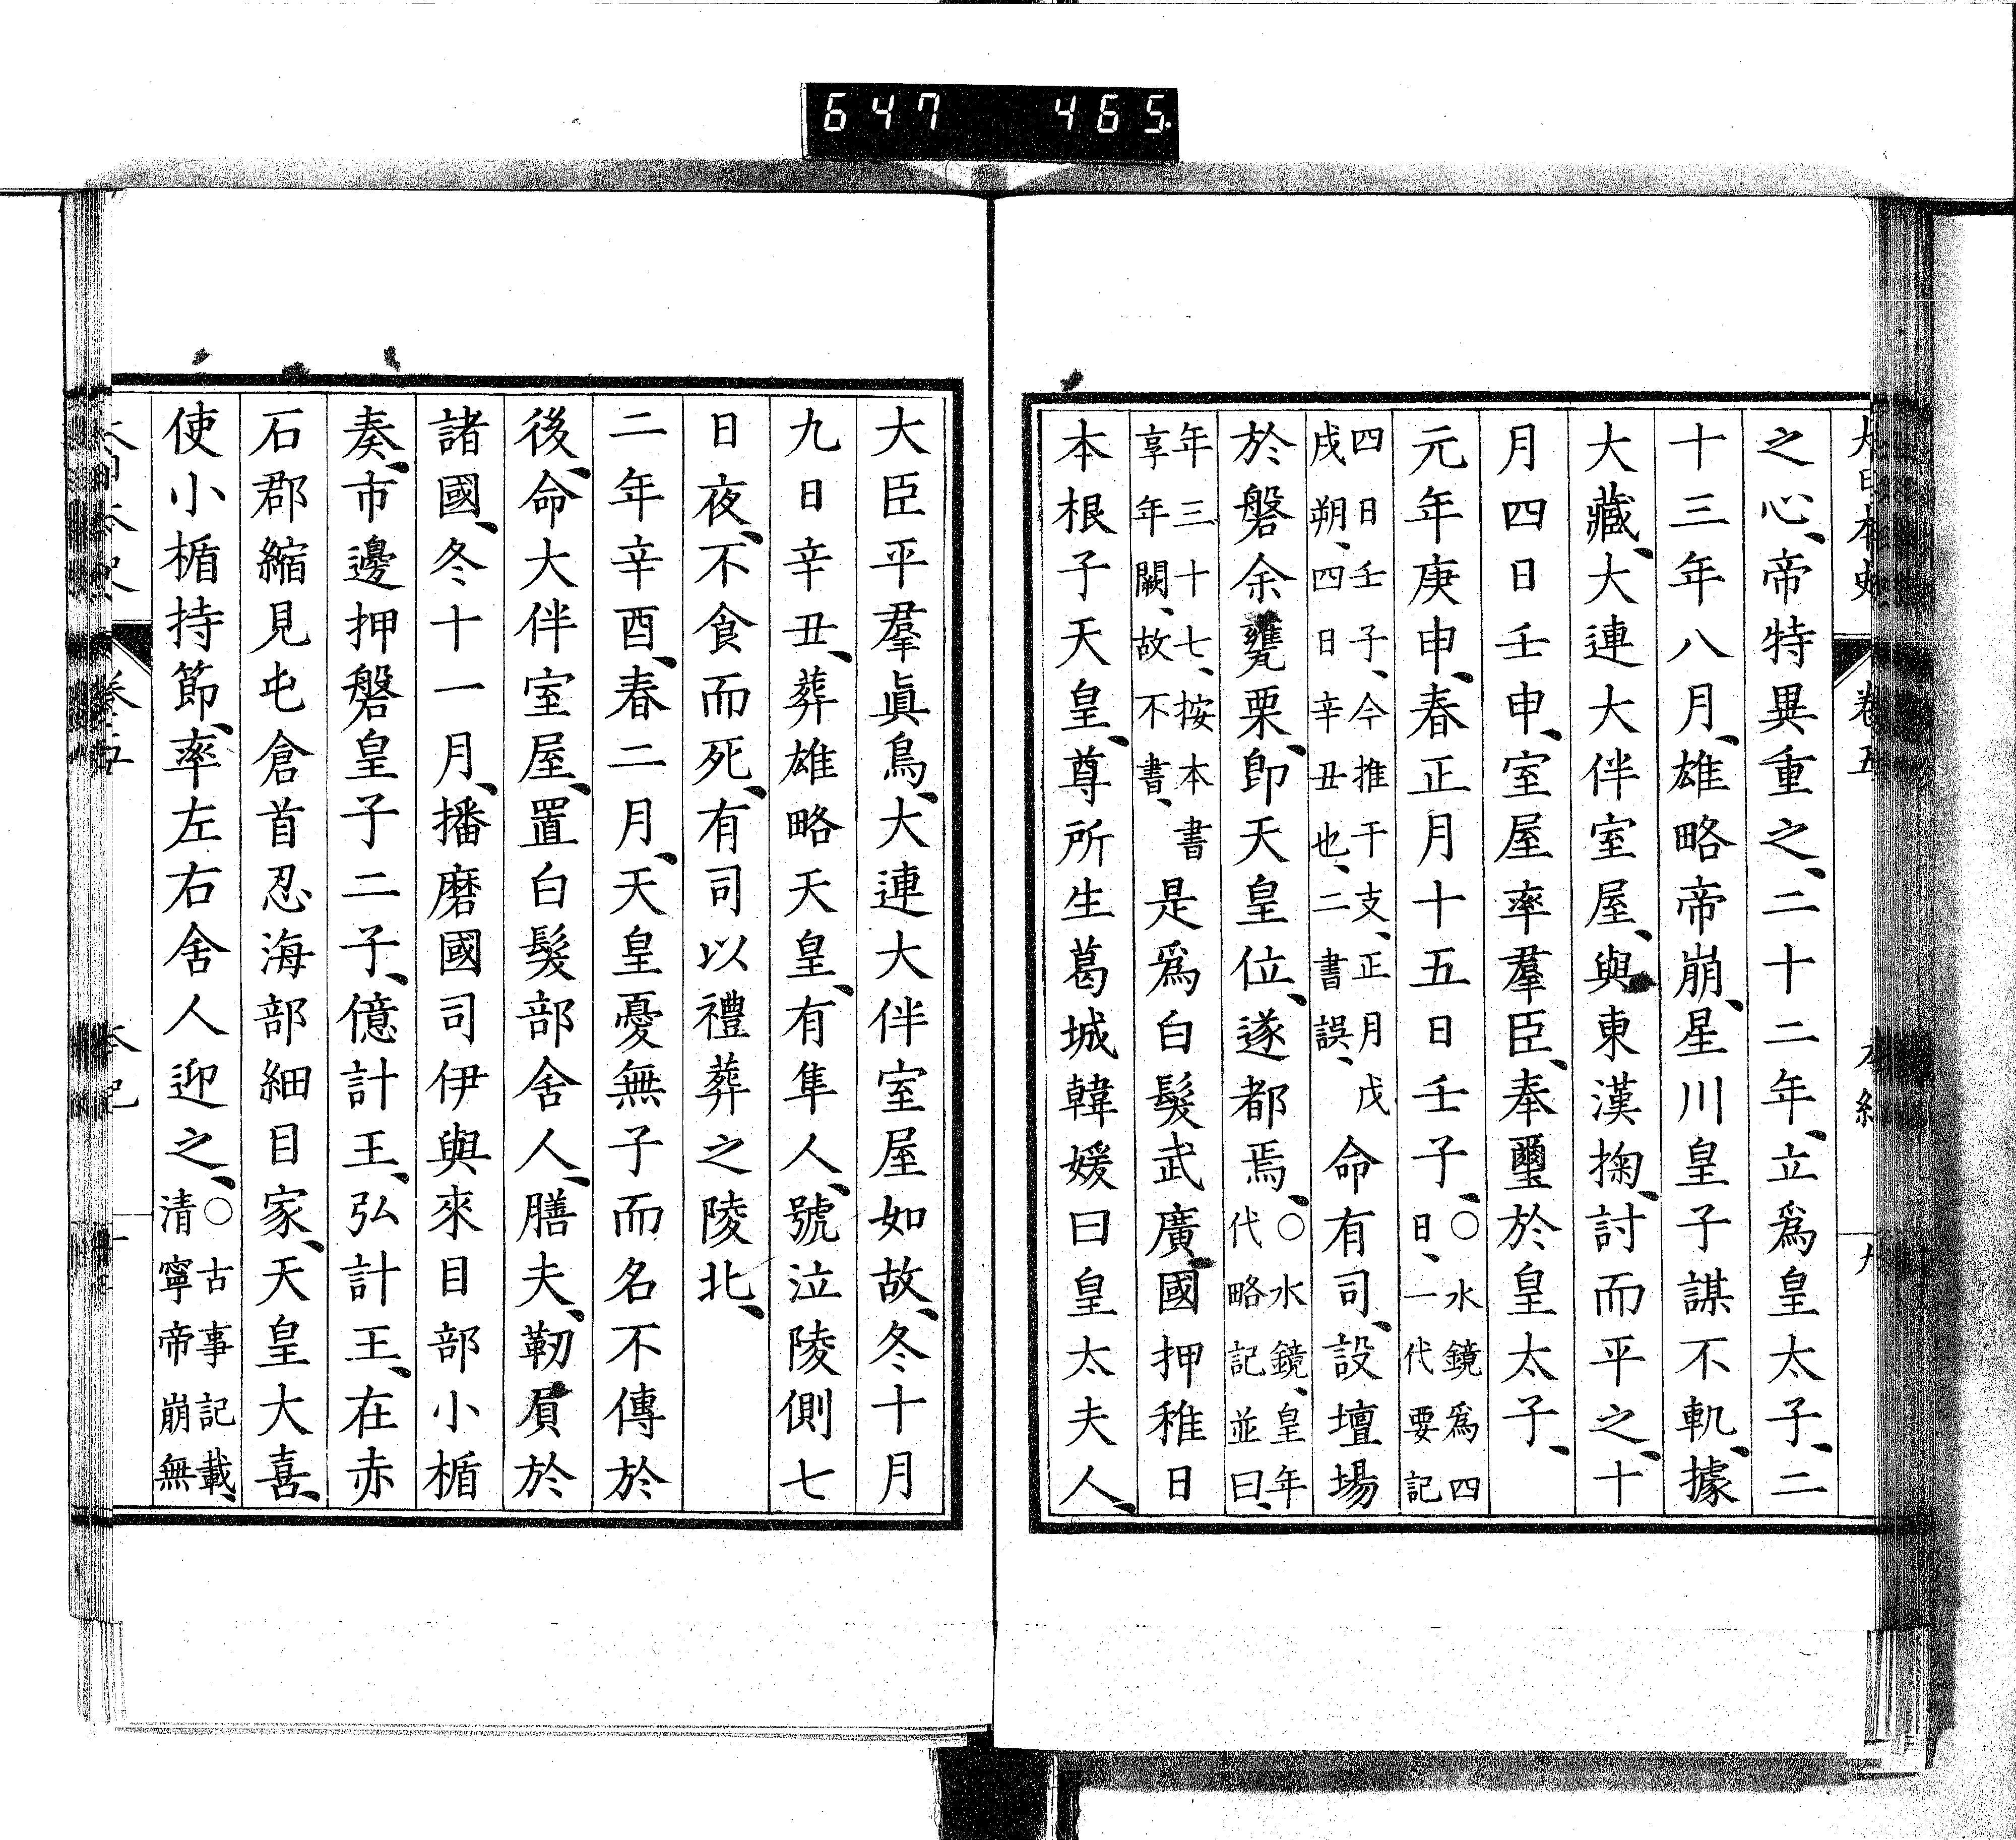 647 465
大日本史 卷五 本紀 九
之心、帝特異重之、二十二年、立爲皇太子、二
十三年八月、雄略帝崩、星川皇子謀不軌、據
大藏、大連大伴室屋、與東漢掬、討而平之、十
月四日壬申、室屋率羣臣、奉璽於皇太子、
元年庚申、春正月十五日壬子、〇水鏡爲四日、一代要記
四日壬子、今推干支、正月戊戌朔、四日辛丑也、二書誤、命有司、設壇場
於磐余甕栗、卽天皇位、遂都焉、〇水鏡、皇年代略記並曰、
年三十七、按本書享年闕、故不書、是爲白髮武廣國押稚日
本根子天皇、尊所生葛城韓媛曰皇太夫人、
大臣平羣眞鳥、大連大伴室屋如故、冬十月
九日辛丑、葬雄略天皇、有隼人、號泣陵側七
日夜、不食而死、有司以禮葬之陵北、
二年辛酉、春二月、天皇憂無子而名不傳於
後、命大伴室屋、置白髮部舍人、膳夫、靭負於
諸國、冬十一月、播磨國司伊與來目部小楯
奏、市邊押磐皇子二子、億計王、弘計王、在赤
石郡縮見屯倉首忍海部細目家、天皇大喜、
使小楯持節、率左右舍人迎之、〇古事記載、清寧帝崩無